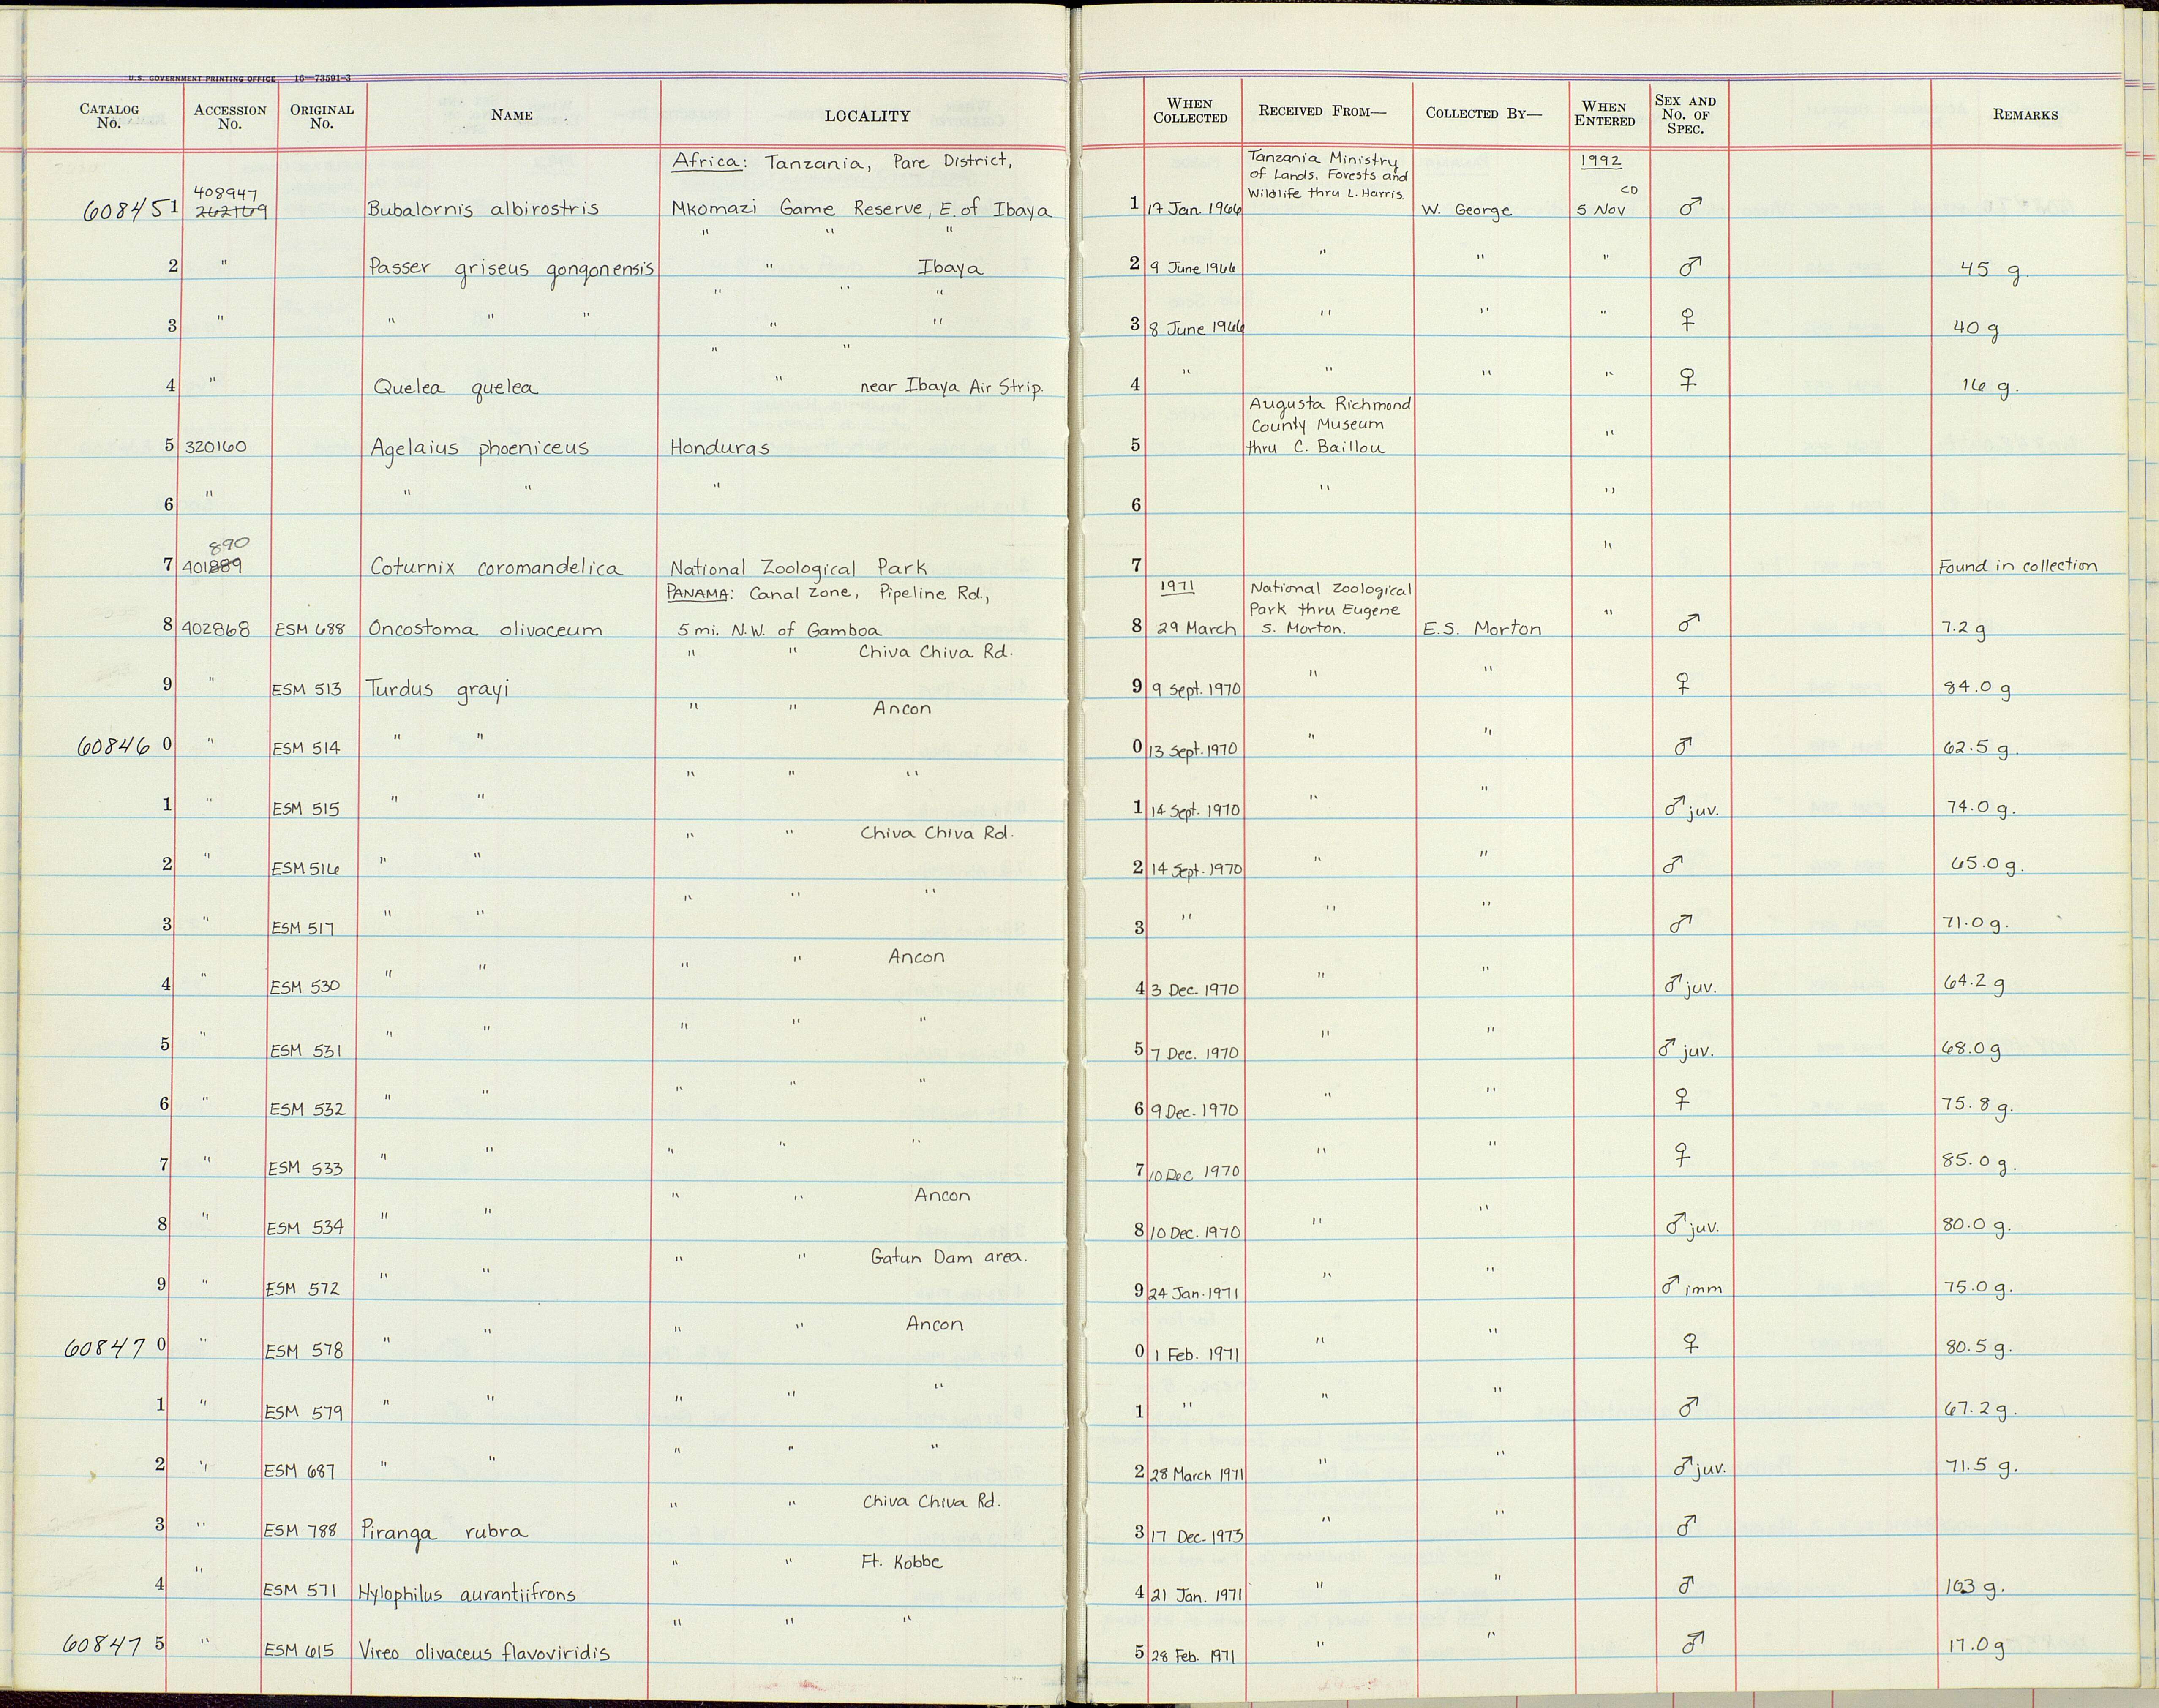 U.S. GOVERNMENT PRINTING OFFICE 16—73591-3
CATALOG No. ACCESSION No. ORIGINAL No. NAME LOCALITY WHEN COLLECTED RECEIVED FROM— COLLECTED BY— WHEN ENTERED SEX AND No. OF SPEC. REMARKS
Africa: Tanzania, Pare District, Tanzania Ministry of Lands, Forests and Wildlife thru L. Harris. 1992
408947 CD
608451 262169 Bubalornis albirostris Mkomazi Game Reserve, E. of Ibaya 1 17 Jan. 1966 W. George 5 Nov ♂
" " "
2 " Passer griseus gongonensis " Ibaya 2 9 June 1966 " " " ♂ 45 g.
" " "
3 " " " " " " 3 8 June 1966 " " " ♀ 40 g
" "
4 " Quelea quelea " near Ibaya Air Strip. 4 " " " " ♀ 16 g.
Augusta Richmond County Museum
5 320160 Agelaius phoeniceus Honduras 5 thru C. Baillou "
6 " " " " 6 " "
890
7 401889 Coturnix coromandelica National Zoological Park 7 " Found in collection
PANAMA: Canal Zone, Pipeline Rd., 1971 National Zoological Park thru Eugene
8 402868 ESM 688 Oncostoma olivaceum 5 mi. N.W. of Gamboa 8 29 March S. Morton. E.S. Morton " ♂ 7.2 g
" " Chiva Chiva Rd.
9 " ESM 513 Turdus grayi 9 9 Sept. 1970 " " ♀ 84.0 g
" " Ancon
608460 " ESM 514 " " 0 13 Sept. 1970 " " ♂ 62.5 g.
" " "
1 " ESM 515 " " 1 14 Sept. 1970 " " ♂ juv. 74.0 g.
" " Chiva Chiva Rd.
2 " ESM 516 " " 2 14 Sept. 1970 " " ♂ 65.0 g.
" " "
3 " ESM 517 " " 3 " " " ♂ 71.0 g.
" " Ancon
4 " ESM 530 " " 4 3 Dec. 1970 " " ♂ juv. 64.2 g
" " "
5 " ESM 531 " " 5 7 Dec. 1970 " " ♂ juv. 68.0 g
" " "
6 " ESM 532 " " 6 9 Dec. 1970 " " ♀ 75.8 g.
" " "
7 " ESM 533 " " 7 10 Dec 1970 " " ♀ 85.0 g.
" " Ancon
8 " ESM 534 " " 8 10 Dec. 1970 " " ♂ juv. 80.0 g.
" " Gatun Dam area.
9 " ESM 572 " " 9 24 Jan. 1971 " " ♂ imm 75.0 g.
" " Ancon
608470 " ESM 578 " " 0 1 Feb. 1971 " " ♀ 80.5 g.
" " "
1 " ESM 579 " " 1 " " " ♂ 67.2 g.
" " "
2 " ESM 687 " " 2 28 March 1971 " " ♂ juv. 71.5 g.
" " Chiva Chiva Rd.
3 " ESM 788 Piranga rubra 3 17 Dec. 1973 " " ♂
" " Ft. Kobbe
4 " ESM 571 Hylophilus aurantiifrons 4 21 Jan. 1971 " " ♂ 10.3 g.
" " "
608475 " ESM 615 Vireo olivaceus flavoviridis 5 28 Feb. 1971 " " ♂ 17.0 g